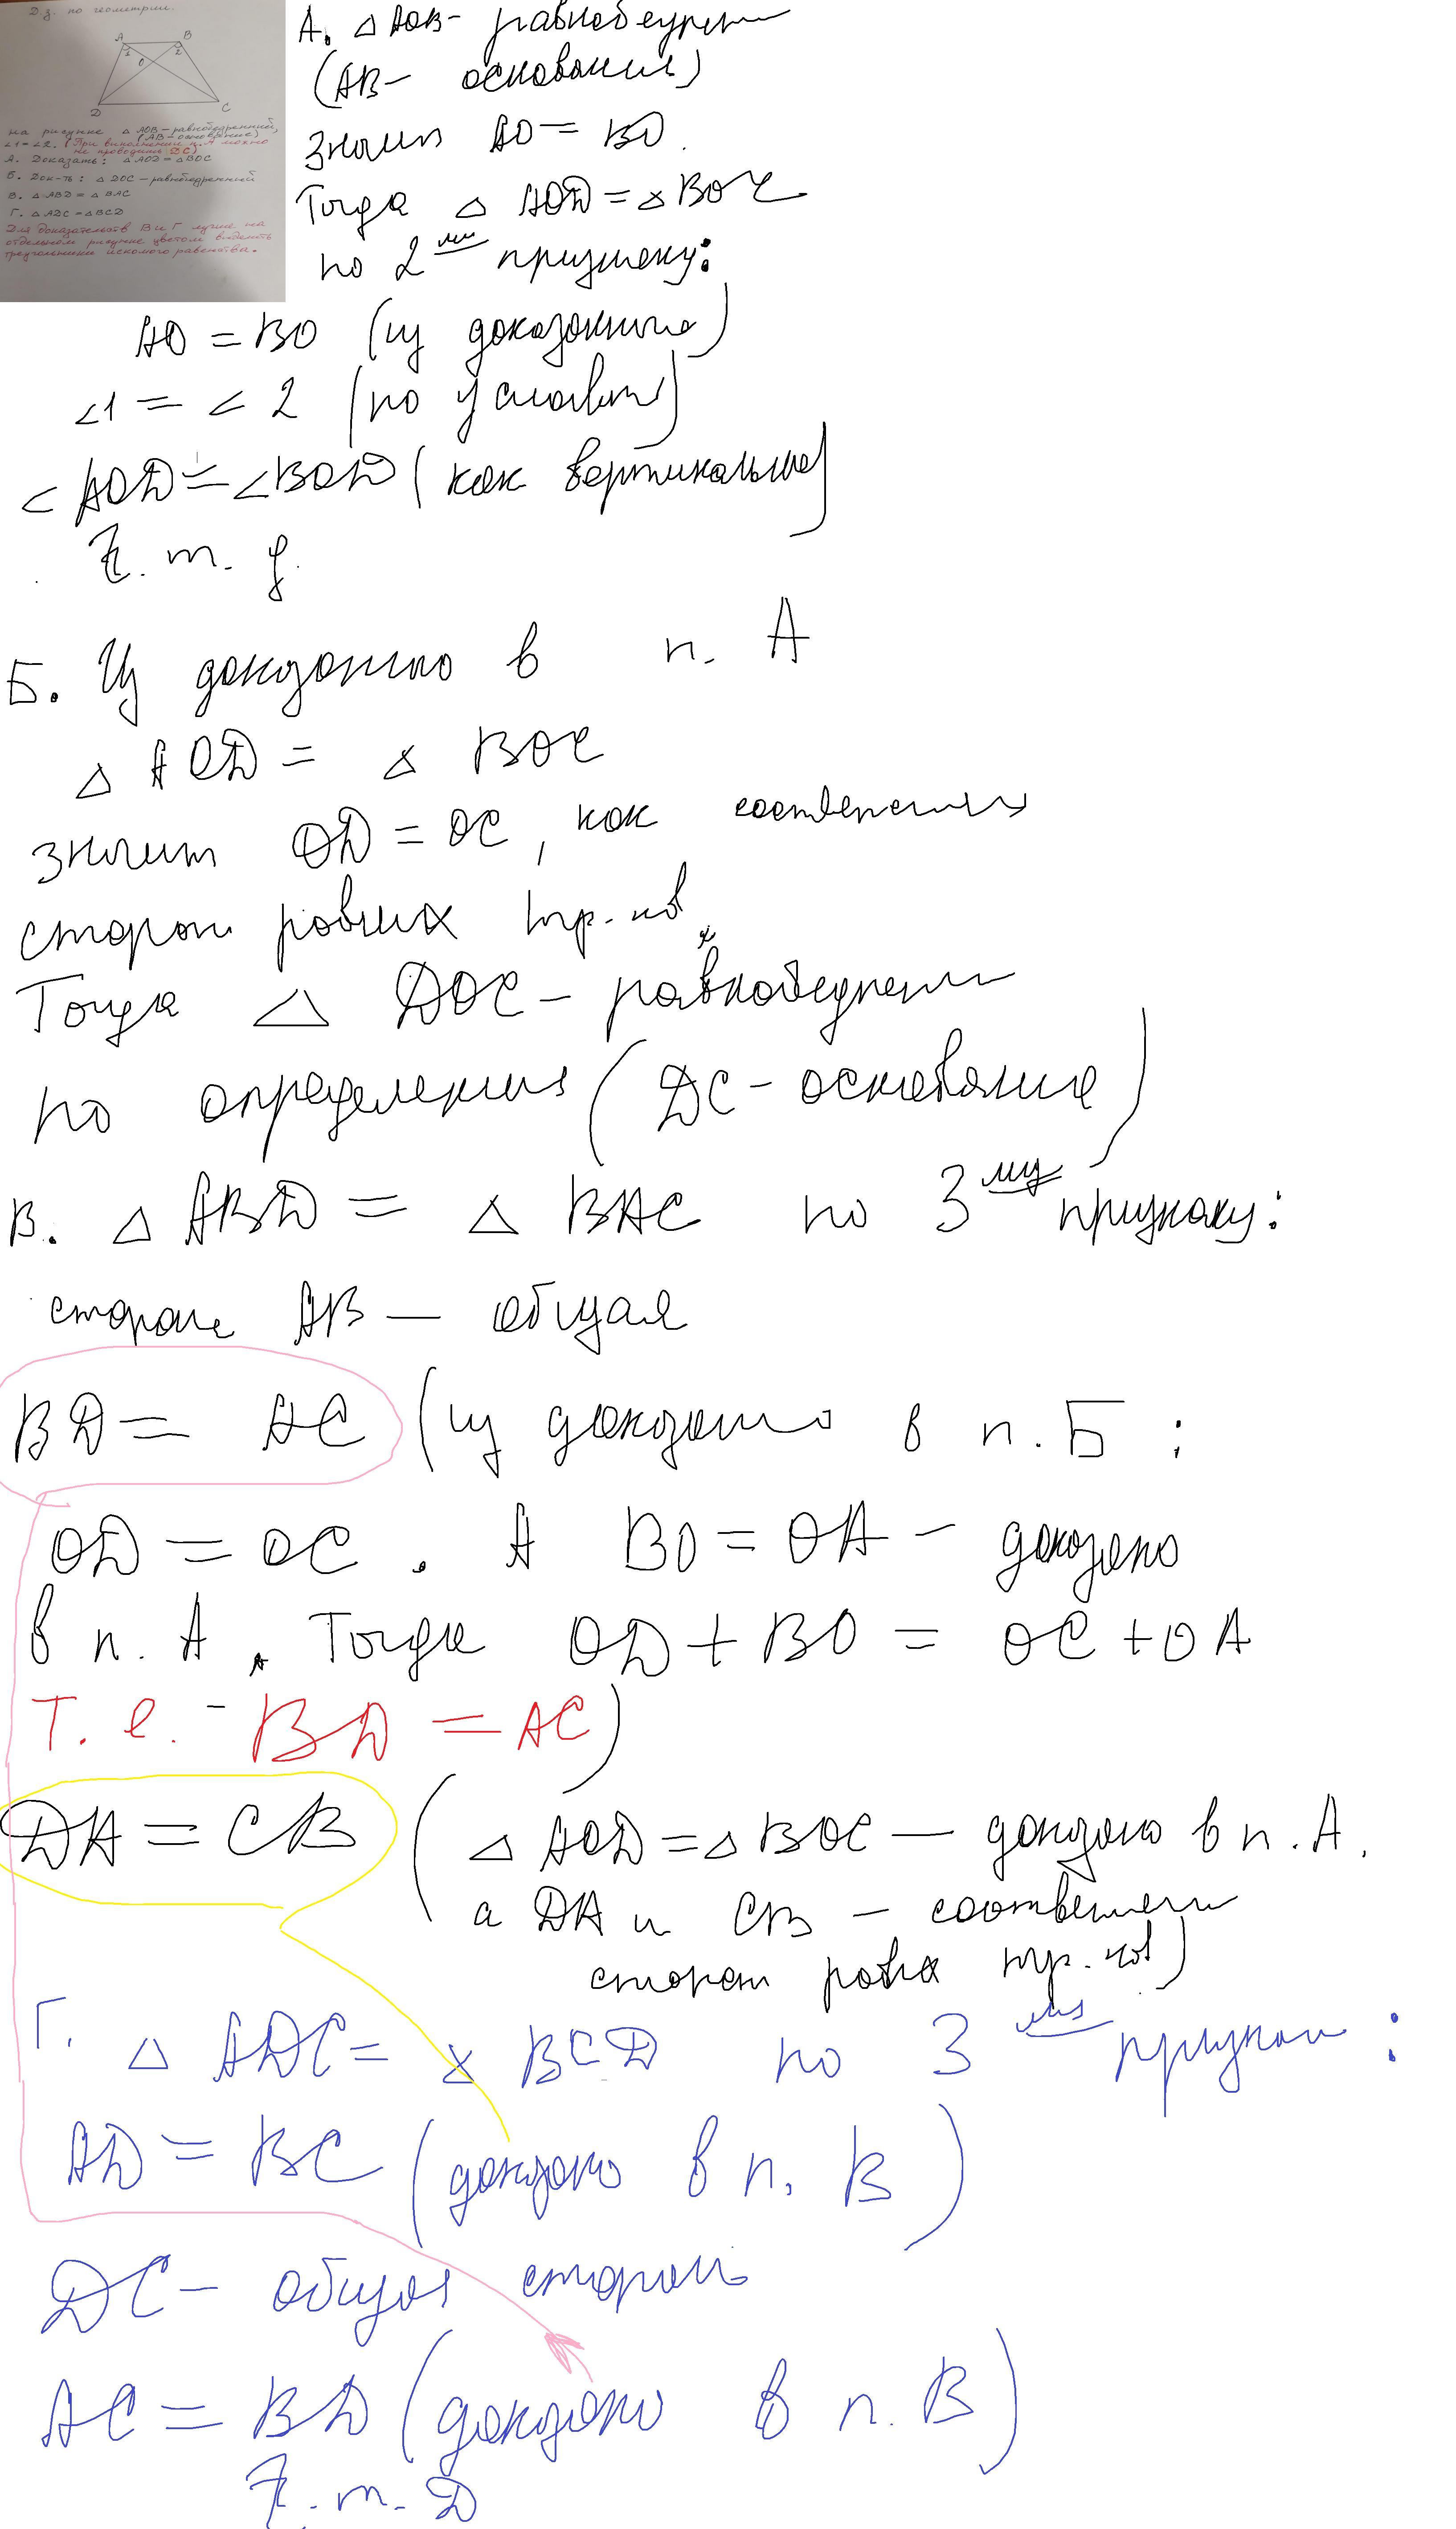 Д.з. по геометрии.
A
B
1
2
O
D
C
на рисунке △ AOB – равнобедренный,
(AB – основание)
∠1 = ∠2. (При выполнении п. А можно
не проводить DC)
А. Доказать: △AOD = △BOC
Б. Док-ть: △ DOC – равнобедренный
В. △ ABD = △ BAC
Г. △ ADC = △BCD
Для доказательств В и Г лучше на
отдельном рисунке цветом выделить
треугольники искомого равенства.
А. △ AOB – равнобедрен
(AB – основания)
Значит AO = BO.
Тогда △ AOD = △ BOC
по 2му признаку:
AO = BO (из доказанного)
∠1 = ∠2 (по условию)
∠AOD = ∠BOD (как вертикальные)
Ч. т. д.
Б. Из доказанно в п. А
△ AOD = △ BOC
значит OD = OC, как соответствен
сторон равных тр-ков
Тогда △ DOC – равнобедрен
по определения (DC – основание)
В. △ ABD = △ BAC по 3му признаку:
сторона AB – общая
BD = AC (из доказано в п. Б:
OD = OC. А BO = OA – доказано
в п. А. Тогда OD + BO = OC + OA
т. е. – BD = AC)
DA = CB (△ AOD = △ BOC – доказано в п. А.
а DA и CB – соответствен
сторон равных тр-ков)
Г. △ ADC = △ BCD по 3му признак:
AD = BC (доказано в п. В)
DC – общая сторон
AC = BD (доказано в п. В)
Ч. т. Д